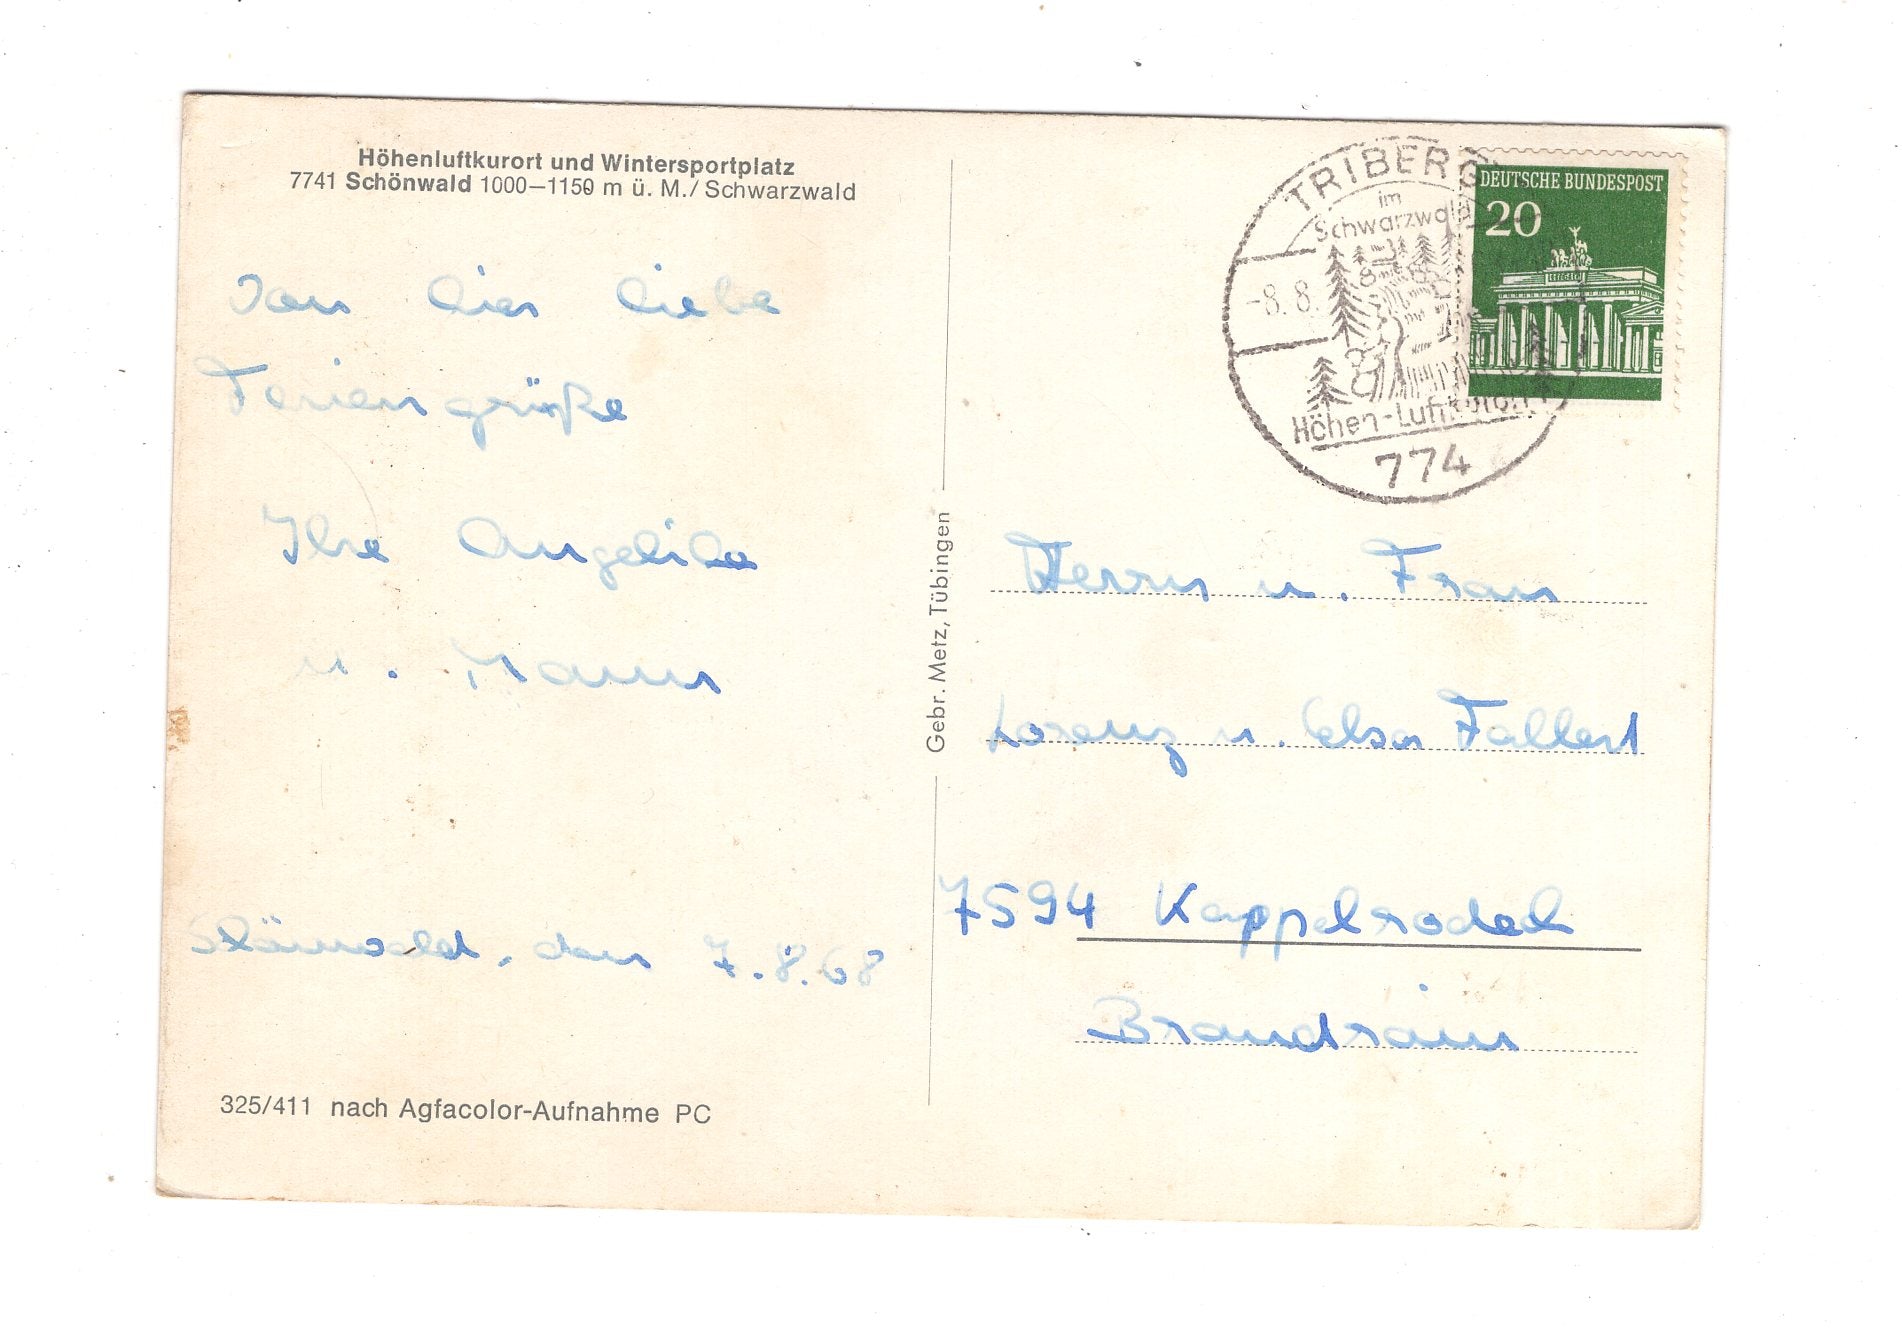 Höhenluftkurort und Wintersportplatz
7741 Schönwald 1000–1150 m ü. M./ Schwarzwald
Von hier liebe
Feriengrüße
Ihre Angelika
u. Mann
den 7.8.68
325/411 nach Agfacolor-Aufnahme PC
Gebr. Metz, Tübingen
TRIBERG
im
Schwarzwald
-8.8.
Höhen-Luftkurort
774
DEUTSCHE BUNDESPOST
20
Herrn u. Frau
Lorenz u. Elsa Fallert
7594 Kappelrodeck
Brandrain